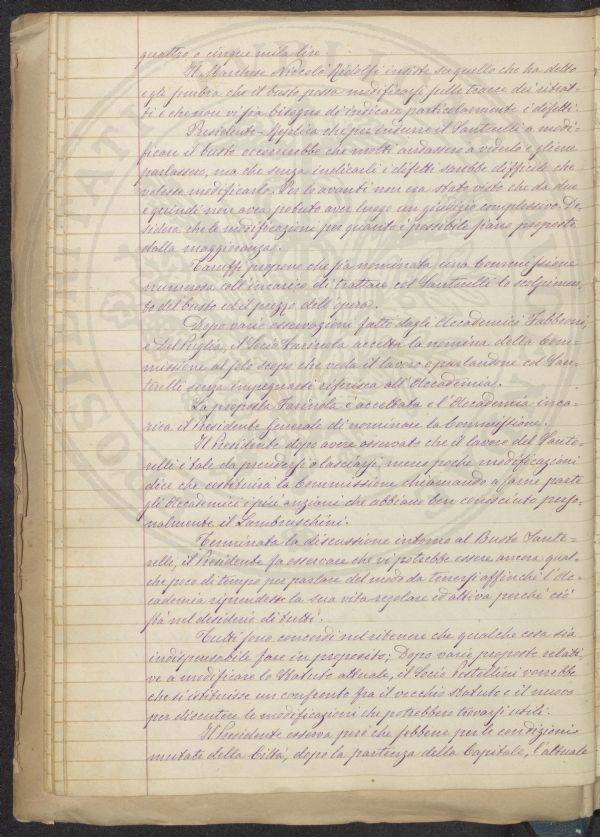 quattro o cinque mila lire.
Il Marchese Niccolò Ridolfi insiste su quello che ha detto
e gli sembra che il busto possa modificarsi sulle tracce dei ritrat-
ti e che non vi sia bisogno di indicare particolarmente i difetti.
Presidente - Replica che per indurre il Santarelli a modi-
ficare il busto occorrerebbe che molti andassero a vederlo e gliene
parlassero, ma che senza indicarli i difetti sarebbe difficile che
volesse modificarlo. Per lo avanti non era stato visto che da due
e quindi non avea potuto aver luogo un giudizio complessivo. De-
sidera che le modificazioni per quanto è possibile siano proposte
dalla maggioranza.
Taruffi propone che sia nominata una Commissione
numerosa coll'incarico di trattare col Santarelli lo scolpimen-
to del busto ed il prezzo dell'opera.
Dopo varie osservazioni fatte dagli Accademici Fabbroni,
e Del Puglia, il Socio Farinola accetta la nomina della Com-
missione al solo scopo che veda il lavoro e parlandone col San-
tarelli senza impegnarsi riferisca all'Accademia.
La proposta Farinola è accettata e l'Accademia inca-
rica il Presidente funerale di nominare la Commissione.
Il Presidente dopo avere osservato che il lavoro del Santa-
relli è tale da prendersi o lasciarsi, meno poche modificazioni
dice che costituirà la Commissione chiamando a farne parte
gli Accademici i più anziani che abbiano ben conosciuto perso-
nalmente il Lambruschini.
Terminata la discussione intorno al Busto Santa-
relli, il Presidente fa osservare che vi potrebbe essere ancora qual-
che poco di tempo per parlare del modo da tenersi affinchè l'Ac-
cademia riprendesse la sua vita regolare ed attiva perchè ciò
sta nel desiderio di tutti.
Tutti sono concordi nel ritenere che qualche cosa sia
indispensabile fare in proposito; Dopo varie proposte relati-
ve a modificare lo Statuto attuale, il Socio Pestellini vorrebbe
che si istituisse un confronto fra il vecchio Statuto e il nuovo
per discutere le modificazioni che potrebbero trovarsi utili.
Il Presidente osserva però che sebbene per le condizioni
mutate della Città, dopo la partenza della Capitale, l'attuale